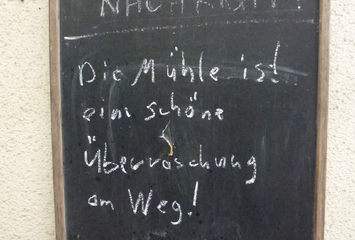 NACHRICHT!
Die Mühle ist
eine schöne
Überraschung
am Weg!